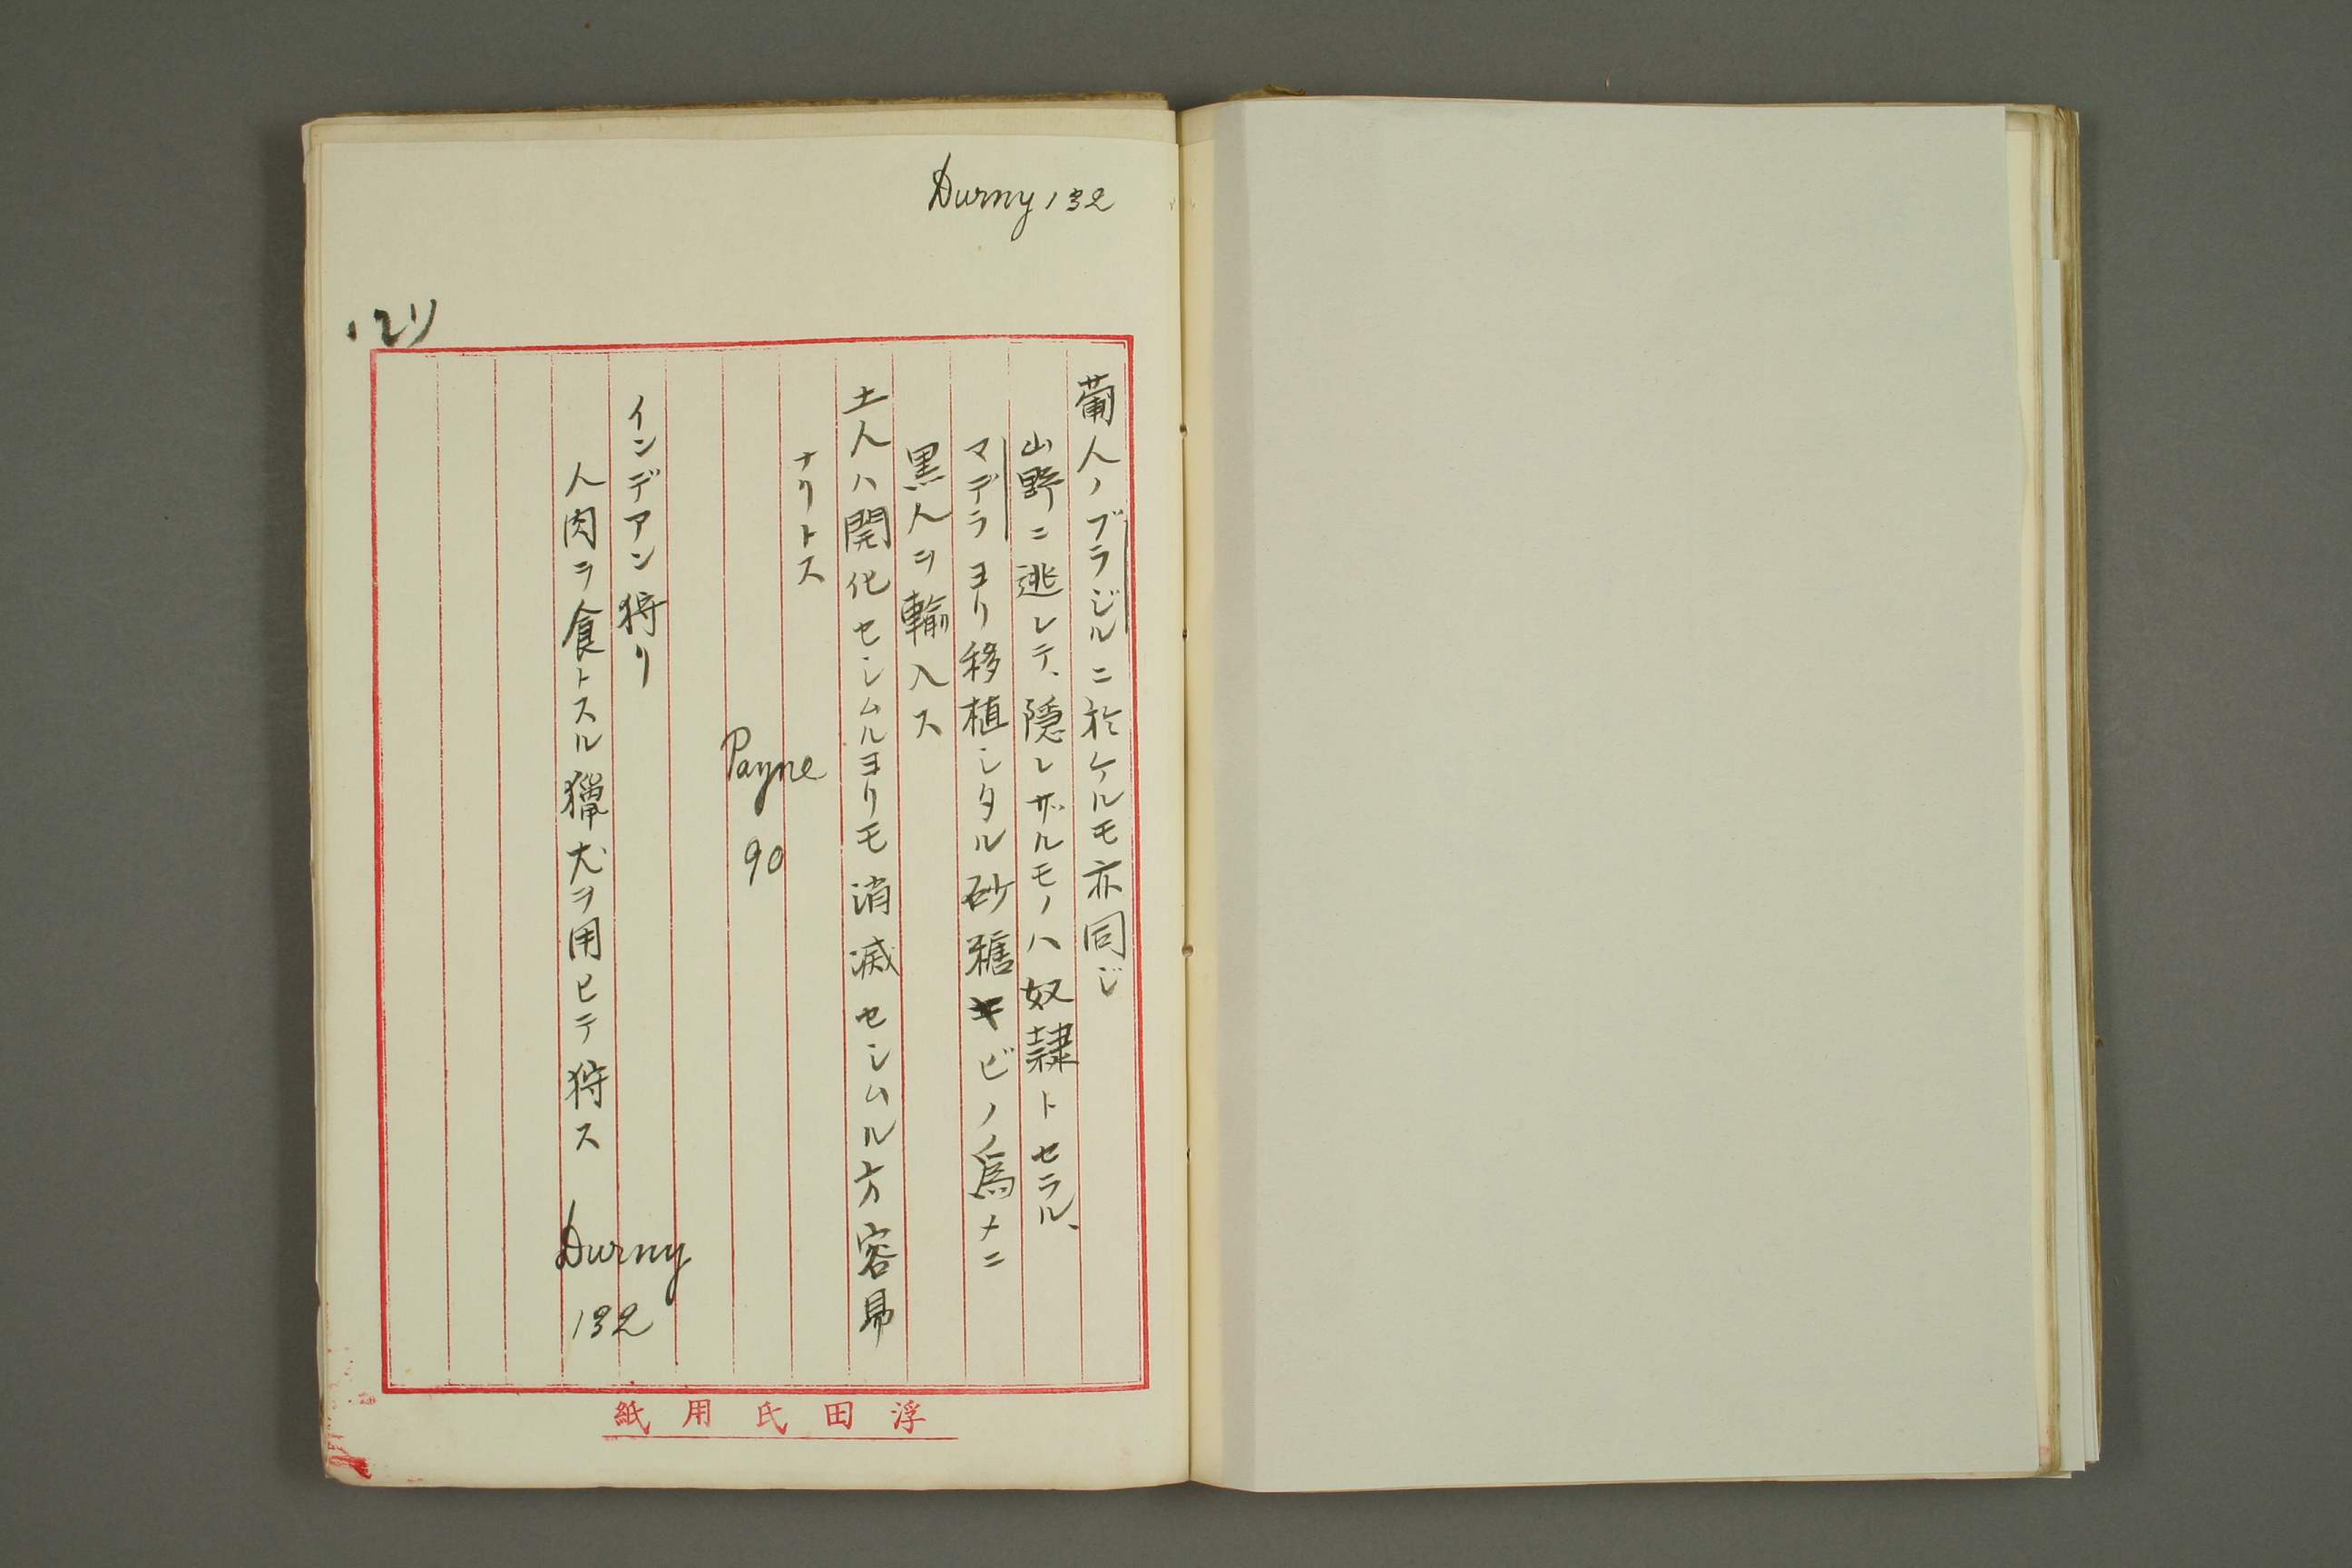 Durny 132
葡人ノブラジルニ於ケルモ亦同ジ
山野ニ逃レテ、隠レザルモノハ奴隷トセラル、
マデラヨリ移植シタル砂糖キビノ為メニ
黒人ヲ輸入ス
土人ハ開化セシムルヨリモ消滅セシムル方容易
ナリトス
Payne 90
インデアン狩リ
人肉ヲ食トスル獵犬ヲ用ヒテ狩ス
Durny 132
浮田氏用紙